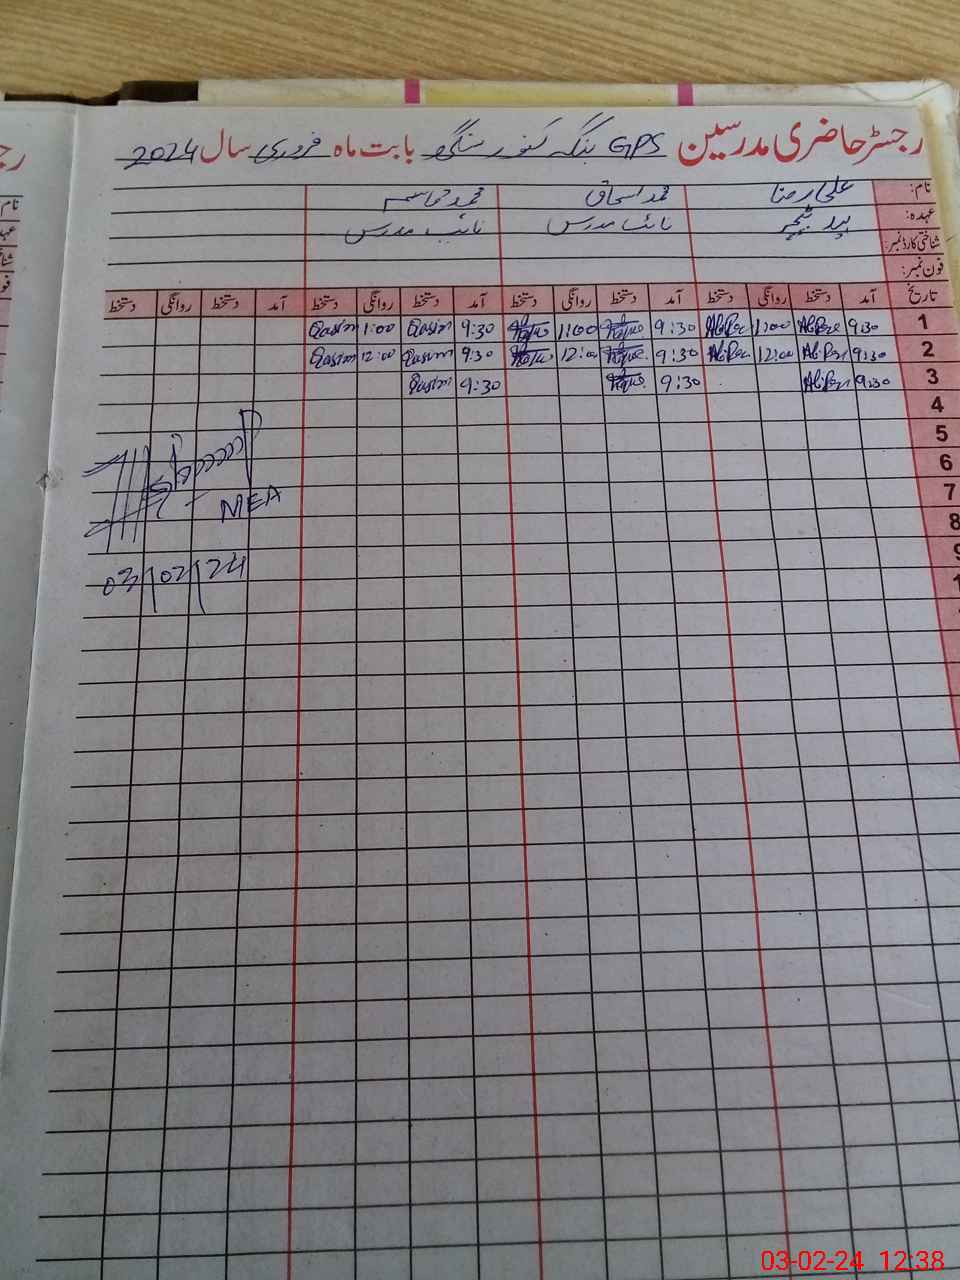 رجسٹر حاضری مدرسین GPS بنگہ کنور سنگھ بابت ماہ فروری سال 2024
نام: علی رضا محمد اسحاق محمد قاسم
عہدہ: ہیڈ ٹیچر نائب مدرس نائب مدرس
شناختی کارڈ نمبر:
فون نمبر:
تاریخ آمد دستخط روانگی دستخط آمد دستخط روانگی دستخط آمد دستخط روانگی دستخط آمد دستخط روانگی دستخط
1 9:30 1:00 9:30 1:00 9:30 Qasim 1:00 Qasim
2 9:30 12:00 9:30 12:00 9:30 Qasim 12:00 Qasim
3 9:30 9:30 9:30 Qasim
4
5
6
7
8
MEA
03/02/24
03-02-24 12:38